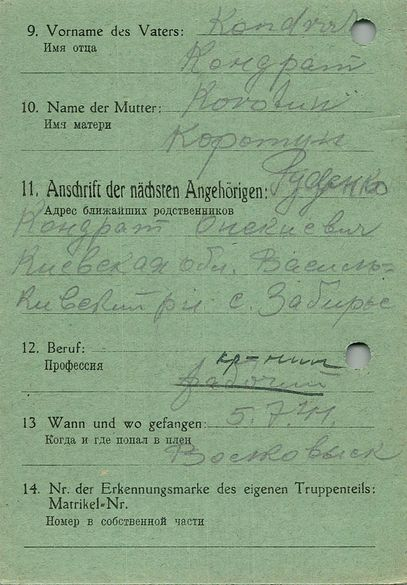 9. Vorname des Vaters: Kondrat
Имя отца
Кондрат
10. Name der Mutter: Korotun
Имя матери
Коротун
11. Anschrift der nächsten Angehörigen: Руденко
Адрес ближайших родственников
Кондрат Онскиевич
Киевская обл. Василь-
ківский рн с. Забирье
12. Beruf: кр-нин
Профессия
рабочий
13 Wann und wo gefangen: 5.7.41.
Когда и где попал в плен
Волковыск
14. Nr. der Erkennungsmarke des eigenen Truppenteils:
Matrikel-Nr.
Номер в собственной части